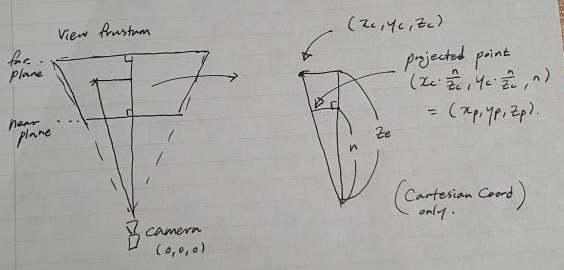 View frustum
far
plane
near
plane
camera
(0,0,0)
(xc, yc, zc)
projected point
(xc · n/zc, yc · n/zc, n)
= (xp, yp, zp).
n
ze
(Cartesian Coord
only.)